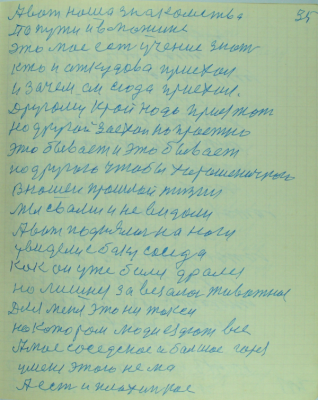 35
А вот наша знакомства
По пути и в машине
Это мое сот учение знат
Кто и откудова приехал
И зачем он сюда приехал.
Другому край надо
На другой заехал напрастно
Это бывает и это бывает
по другого чтобы хорошеничнего
В нашей прошлой жизни
мы свами и не видали
А вот поднялис на ноги
увидели баки соседа
Как он уже били драли
но лишних за везалос животное
Для меня это ни такси
на котором люди ездют все
А мое соседское и балшое горя
уменя этого не ма
А ест и плахинкое